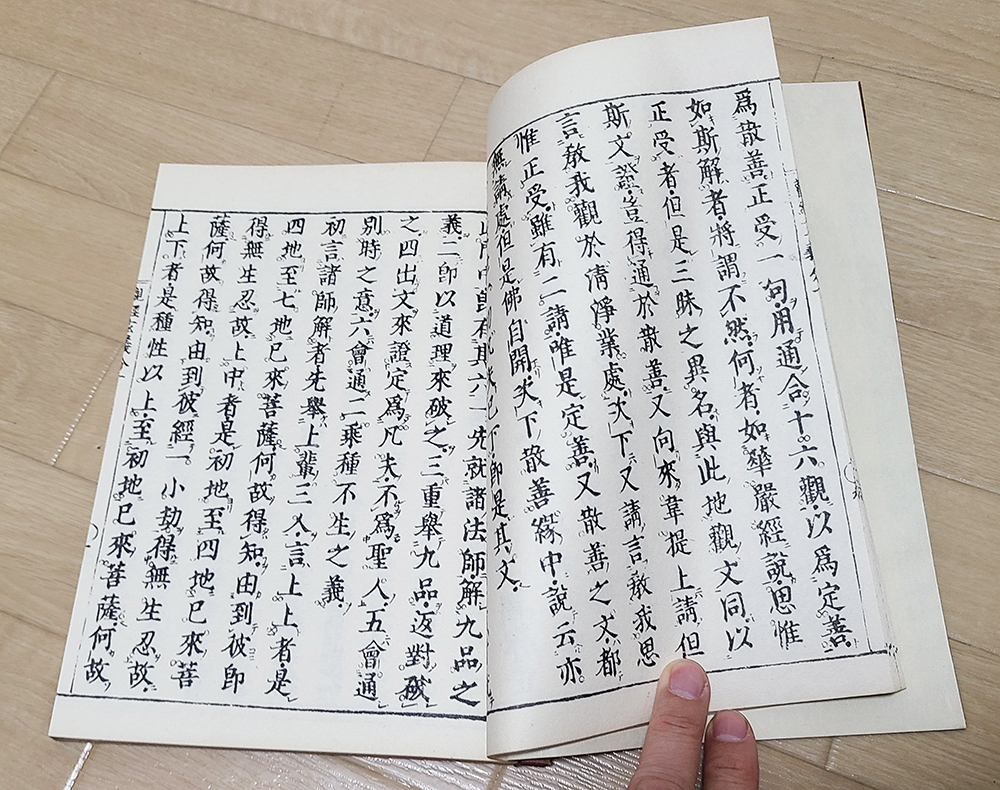 爲散善正受一句用通合十六觀以爲定善
如斯解者將謂不然何者如華嚴經說思惟
正受者但是三昧之異名與此地觀文同以
斯文證豈得通於散善又向來韋提上請但
言教我觀於清淨業處次下又請言教我思
惟正受雖有二請唯是定善又散善之文都
無請處但是佛自開次下散善緣中說云亦
已下即是其文
中即有其六一先就諸法師解九品之
義二即以道理來破之三重舉九品返對破
之四出文來證定爲凡夫不爲聖人五會通
別時之意六會通二乘種不生之義
初言諸師解者先舉上輩三人言上上者是
四地至七地已來菩薩何故得知由到彼即
得無生忍故上中者是初地至四地已來菩
薩何故得知由到彼經一小劫得無生忍故
上下者是種性以上至初地已來菩薩何故